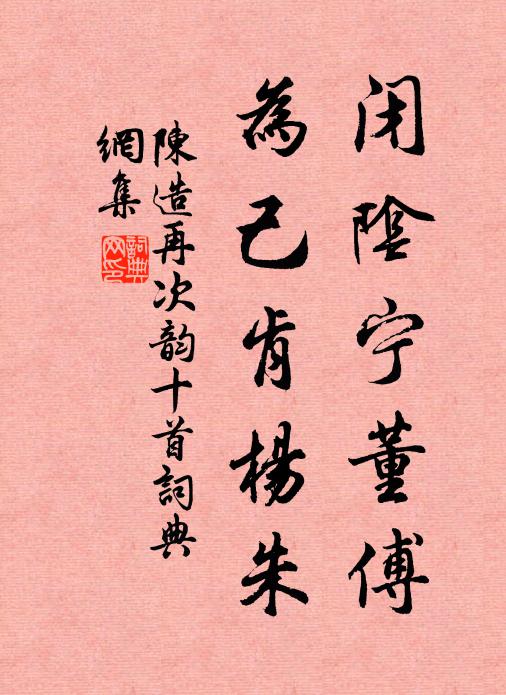 闭陰宁董傅
為己肯楊朱
陳造再次韵十首詞典
網集
詞典
网印